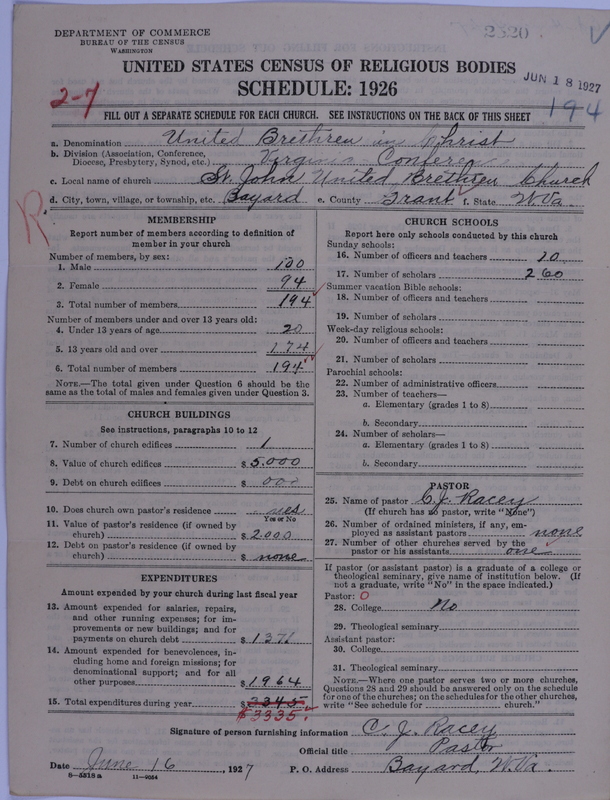 DEPARTMENT OF COMMERCE
BUREAU OF THE CENSUS
WASHINGTON
2320
UNITED STATES CENSUS OF RELIGIOUS BODIES
JUN 18 1927
SCHEDULE: 1926
2-7
194
FILL OUT A SEPARATE SCHEDULE FOR EACH CHURCH. SEE INSTRUCTIONS ON THE BACK OF THIS SHEET
a. Denomination United Brethren in Christ
b. Division (Association, Conference, Diocese, Presbytery, Synod, etc.) Virginia Conferen
c. Local name of church St. John United Brethren Church
d. City, town, village, or township, etc. Bayard e. County Grant f. State W.Va.
R
MEMBERSHIP
Report number of members according to definition of
member in your church
Number of members, by sex:
1. Male 100
2. Female 94
3. Total number of members 194
Number of members under and over 13 years old:
4. Under 13 years of age 20
5. 13 years old and over 174
6. Total number of members 194
NOTE.—The total given under Question 6 should be the
same as the total of males and females given under Question 3.
CHURCH BUILDINGS
See instructions, paragraphs 10 to 12
7. Number of church edifices 1
8. Value of church edifices $ 5,000
9. Debt on church edifices $ 000
10. Does church own pastor's residence? yes
Yes or No
11. Value of pastor's residence (if owned by
church) $ 2,000
12. Debt on pastor's residence (if owned by
church) $ none
EXPENDITURES
Amount expended by your church during last fiscal year
13. Amount expended for salaries, repairs,
and other running expenses; for im-
provements or new buildings; and for
payments on church debt $ 1371
14. Amount expended for benevolences, in-
cluding home and foreign missions; for
denominational support; and for all
other purposes $ 1964
15. Total expenditures during year $ 2345
$3335.
CHURCH SCHOOLS
Report here only schools conducted by this church
Sunday schools:
16. Number of officers and teachers 20
17. Number of scholars 260
Summer vacation Bible schools:
18. Number of officers and teachers
19. Number of scholars
Week-day religious schools:
20. Number of officers and teachers
21. Number of scholars
Parochial schools:
22. Number of administrative officers
23. Number of teachers—
a. Elementary (grades 1 to 8)
b. Secondary
24. Number of scholars—
a. Elementary (grades 1 to 8)
b. Secondary
PASTOR
25. Name of pastor C. J. Racey
(If church has no pastor, write "None")
26. Number of ordained ministers, if any, em-
ployed as assistant pastors none
27. Number of other churches served by the
pastor or his assistants one
If pastor (or assistant pastor) is a graduate of a college or
theological seminary, give name of institution below. (If
not a graduate, write "No" in the space indicated.)
Pastor: O
28. College No
29. Theological seminary
Assistant pastor:
30. College
31. Theological seminary
NOTE.—Where one pastor serves two or more churches,
Questions 28 and 29 should be answered only on the schedule
for one of the churches; on the schedules for the other churches,
write "See schedule for church."
Signature of person furnishing information C. J. Racey
Official title Pastor
Date June 16, 1927 P. O. Address Bayard, W.Va.
8-5518a 11-9054